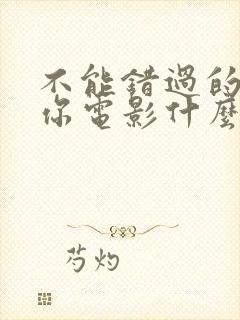 不能錯過的
你電影什麼
芍灼